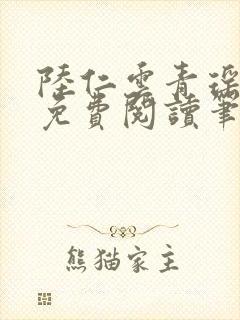 陸仁雲青瑶
免費閱讀筆
熊猫家主